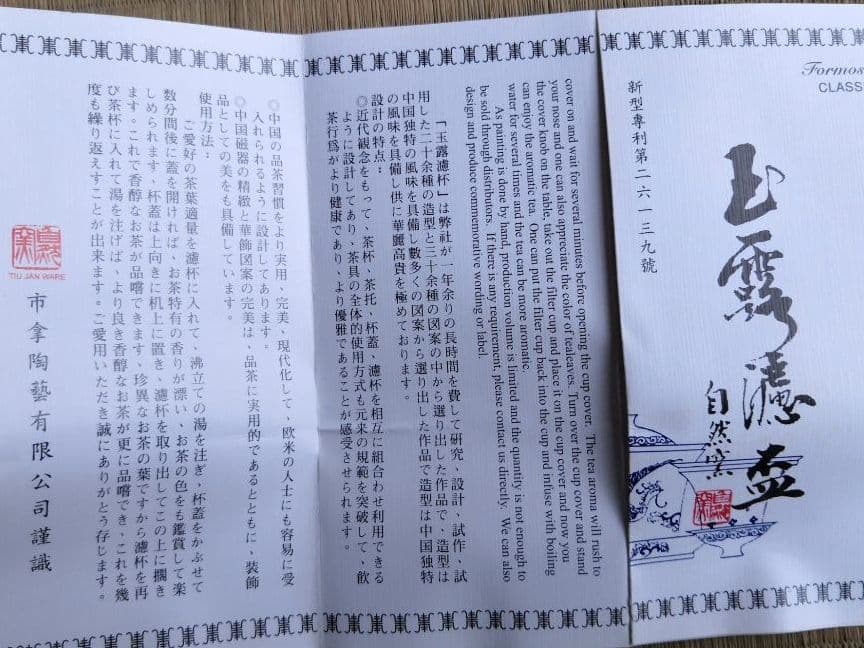 Formos
CLASSI
新型專利第二六一三九號
玉露濾盃
自然窯
cover on and wait for several minutes before opening the cup cover. The tea aroma will rush to
your nose and one can also appreciate the color of tealeaves. Turn over the cup cover and stand
the cover knob on the table, take out the filter cup and place it on the cup cover and now you
can enjoy the aromatic tea. One can put the filter cup back into the cup and infuse with boiling
water for several times and the tea can be more aromatic.
As painting is done by hand, production volume is limited and the quantity is not enough to
be sold through distributors. If there is any requirement, please contact us directly. We can also
design and produce commemorative wording or label.
「玉露濾杯」は弊社が一年余りの長時間を費して研究、設計、試作、試
用した二十余種の造型と三十余種の図案の中から選り出した作品で、造型は
中国独特の風味を具備し数多くの図案から選り出した作品で造型は中国独特
の風味を具備し供に華麗高貴を極めております。
設計の特点：
◎近代観念をもって、茶杯、茶托、杯蓋、濾杯を相互に組合わせ利用できる
ように設計してあり、茶具の全体的使用方式も元来の規範を突破して、飲
茶行為がより健康であり、より優雅であることが感受させられます。
◎中国の品茶習慣をより実用、完美、現代化して、欧米の人士にも容易に受
入れられるように設計してあります。
◎中国磁器の精緻と華飾図案の完美は、品茶に実用的であるとともに、装飾
品としての美をも具備しています。
使用方法：
ご愛好の茶葉適量を濾杯に入れて、沸立ての湯を注ぎ、杯蓋をかぶせて
数分間後に蓋を開ければ、お茶特有の香りが漂い、お茶の色をも鑑賞して楽
しめられます、杯蓋は上向きに机上に置き、濾杯を取り出してこの上に擱き
ます。これで香醇なお茶が品嚐できます、珍異なお茶の葉ですから濾杯を再
び茶杯に入れて湯を注げば、より良き香醇なお茶が更に品嚐でき、これを幾
度も繰り返えすことが出来ます。ご愛用いただき誠にありがとう存じます。
TIU JAN WARE
市拿陶藝有限公司謹識